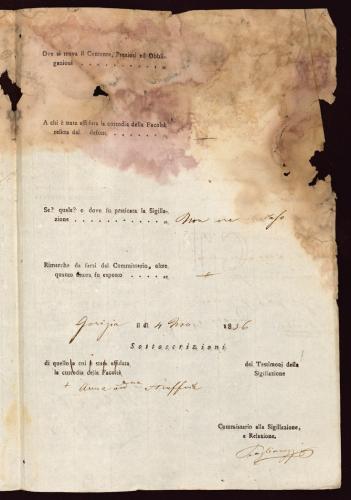 Ove si trova il Contante, Preziosi ed Obbli-
gazioni . . . . . . . . . . .
A chi è stata affidata la custodia della Facoltà
relitta dal defont. . . . . . . .
Se? quale? e dove fu praticata la Sigilla-
zione . . . . . . . . . . . . Non
Rimarche da farsi dal Commissario, oltre
quanto finora fu esposto . . .
Gorizia li di 4 1836
Sottoscrizioni
di quello a cui è stata affidata
la custodia della Facoltà
dei Testimonj della
Sigillazione
+ Anna
Commissario alla Sigillazione,
e Relazione.